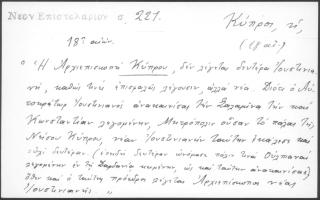 Νέον Επιστολάριον σ. 221.
Κύπρος, τό,
18ῃ αἰών.
(18 αἰ.)
"Ἡ Ἀρχιεπισκοπὴ Κύπρου, δὲν λέγεται δευτέρα Ἰουστινια
νή, καθὼς τινὲς ἐσφαλμένως λέγουσιν, ἀλλὰ νέα. Διότι ὁ Αὐ
τοκράτωρ Ἰουστινιανὸς ἀνακαινίσας τὴν Σαλαμίνα τὴν καὶ
Κωνσταντίαν λεγομένην, Μητρόπολιν οὖσαν τὸ πάλαι τῆς
Νήσου Κύπρου, νέαν Ἰουστινιανὴν ταύτην ἐκάλεσε καὶ
οὐχὶ δευτέραν (ἐπειδὴ δευτέραν ὠνόμασε πόλιν τινὰ Οὐλπιανὰ
λεγομένην ἐν τῇ Δαρδανίᾳ κειμένην, ὡς καὶ ταύτην ἀνακαινίσας)
ὅθεν καὶ ὁ ταύτης πρόεδρος λέγεται Ἀρχιεπίσκοπος νέας
Ἰουστινιανῆς "